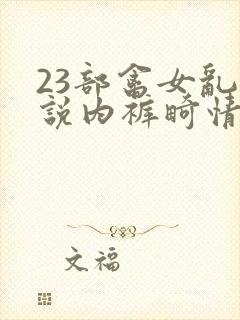 23部畲女乱
說内裤畸情
文福